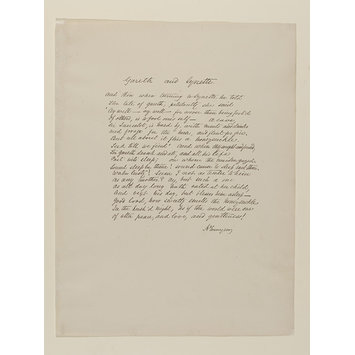 Gareth and Lynette
And then when turning to Lynette he told
The tale of Gareth, petulantly she said
Ay well — ay well — for worse than being fool'd
Of others, is to fool one's self — A cave
Sir Lancelot, is hard by, with meats and drinks
And forage for the horse, and flint for fire,
But all about it flies a honeysuckle.
Seek till we find. And when they sought and found,
Sir Gareth drank and ate, and all his life
Past into sleep; on whom the maiden gazed.
Sound sleep be thine! sound cause to sleep hast thou.
Wake lusty! Seem I not as tender to him
As any mother? Ay, but such a one
As all day long hath rated at her child,
And vext his day, but blesses him asleep —
Good Lord, how sweetly smells the honeysuckle
In the hush'd night, as if the world were one
Of utter peace, and love, and gentleness!
A Tennyson